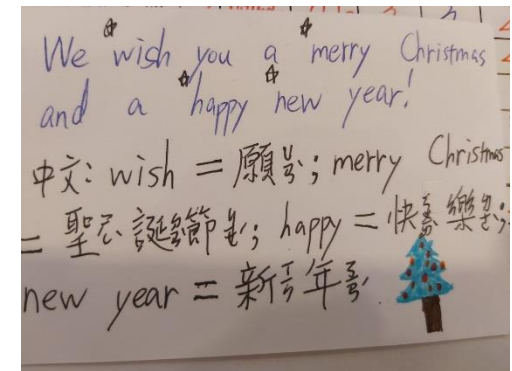 We wish you a merry Christmas
and a happy new year!
中文: wish = 願; merry Christmas
= 聖誕節; happy = 快樂;
new year = 新年.